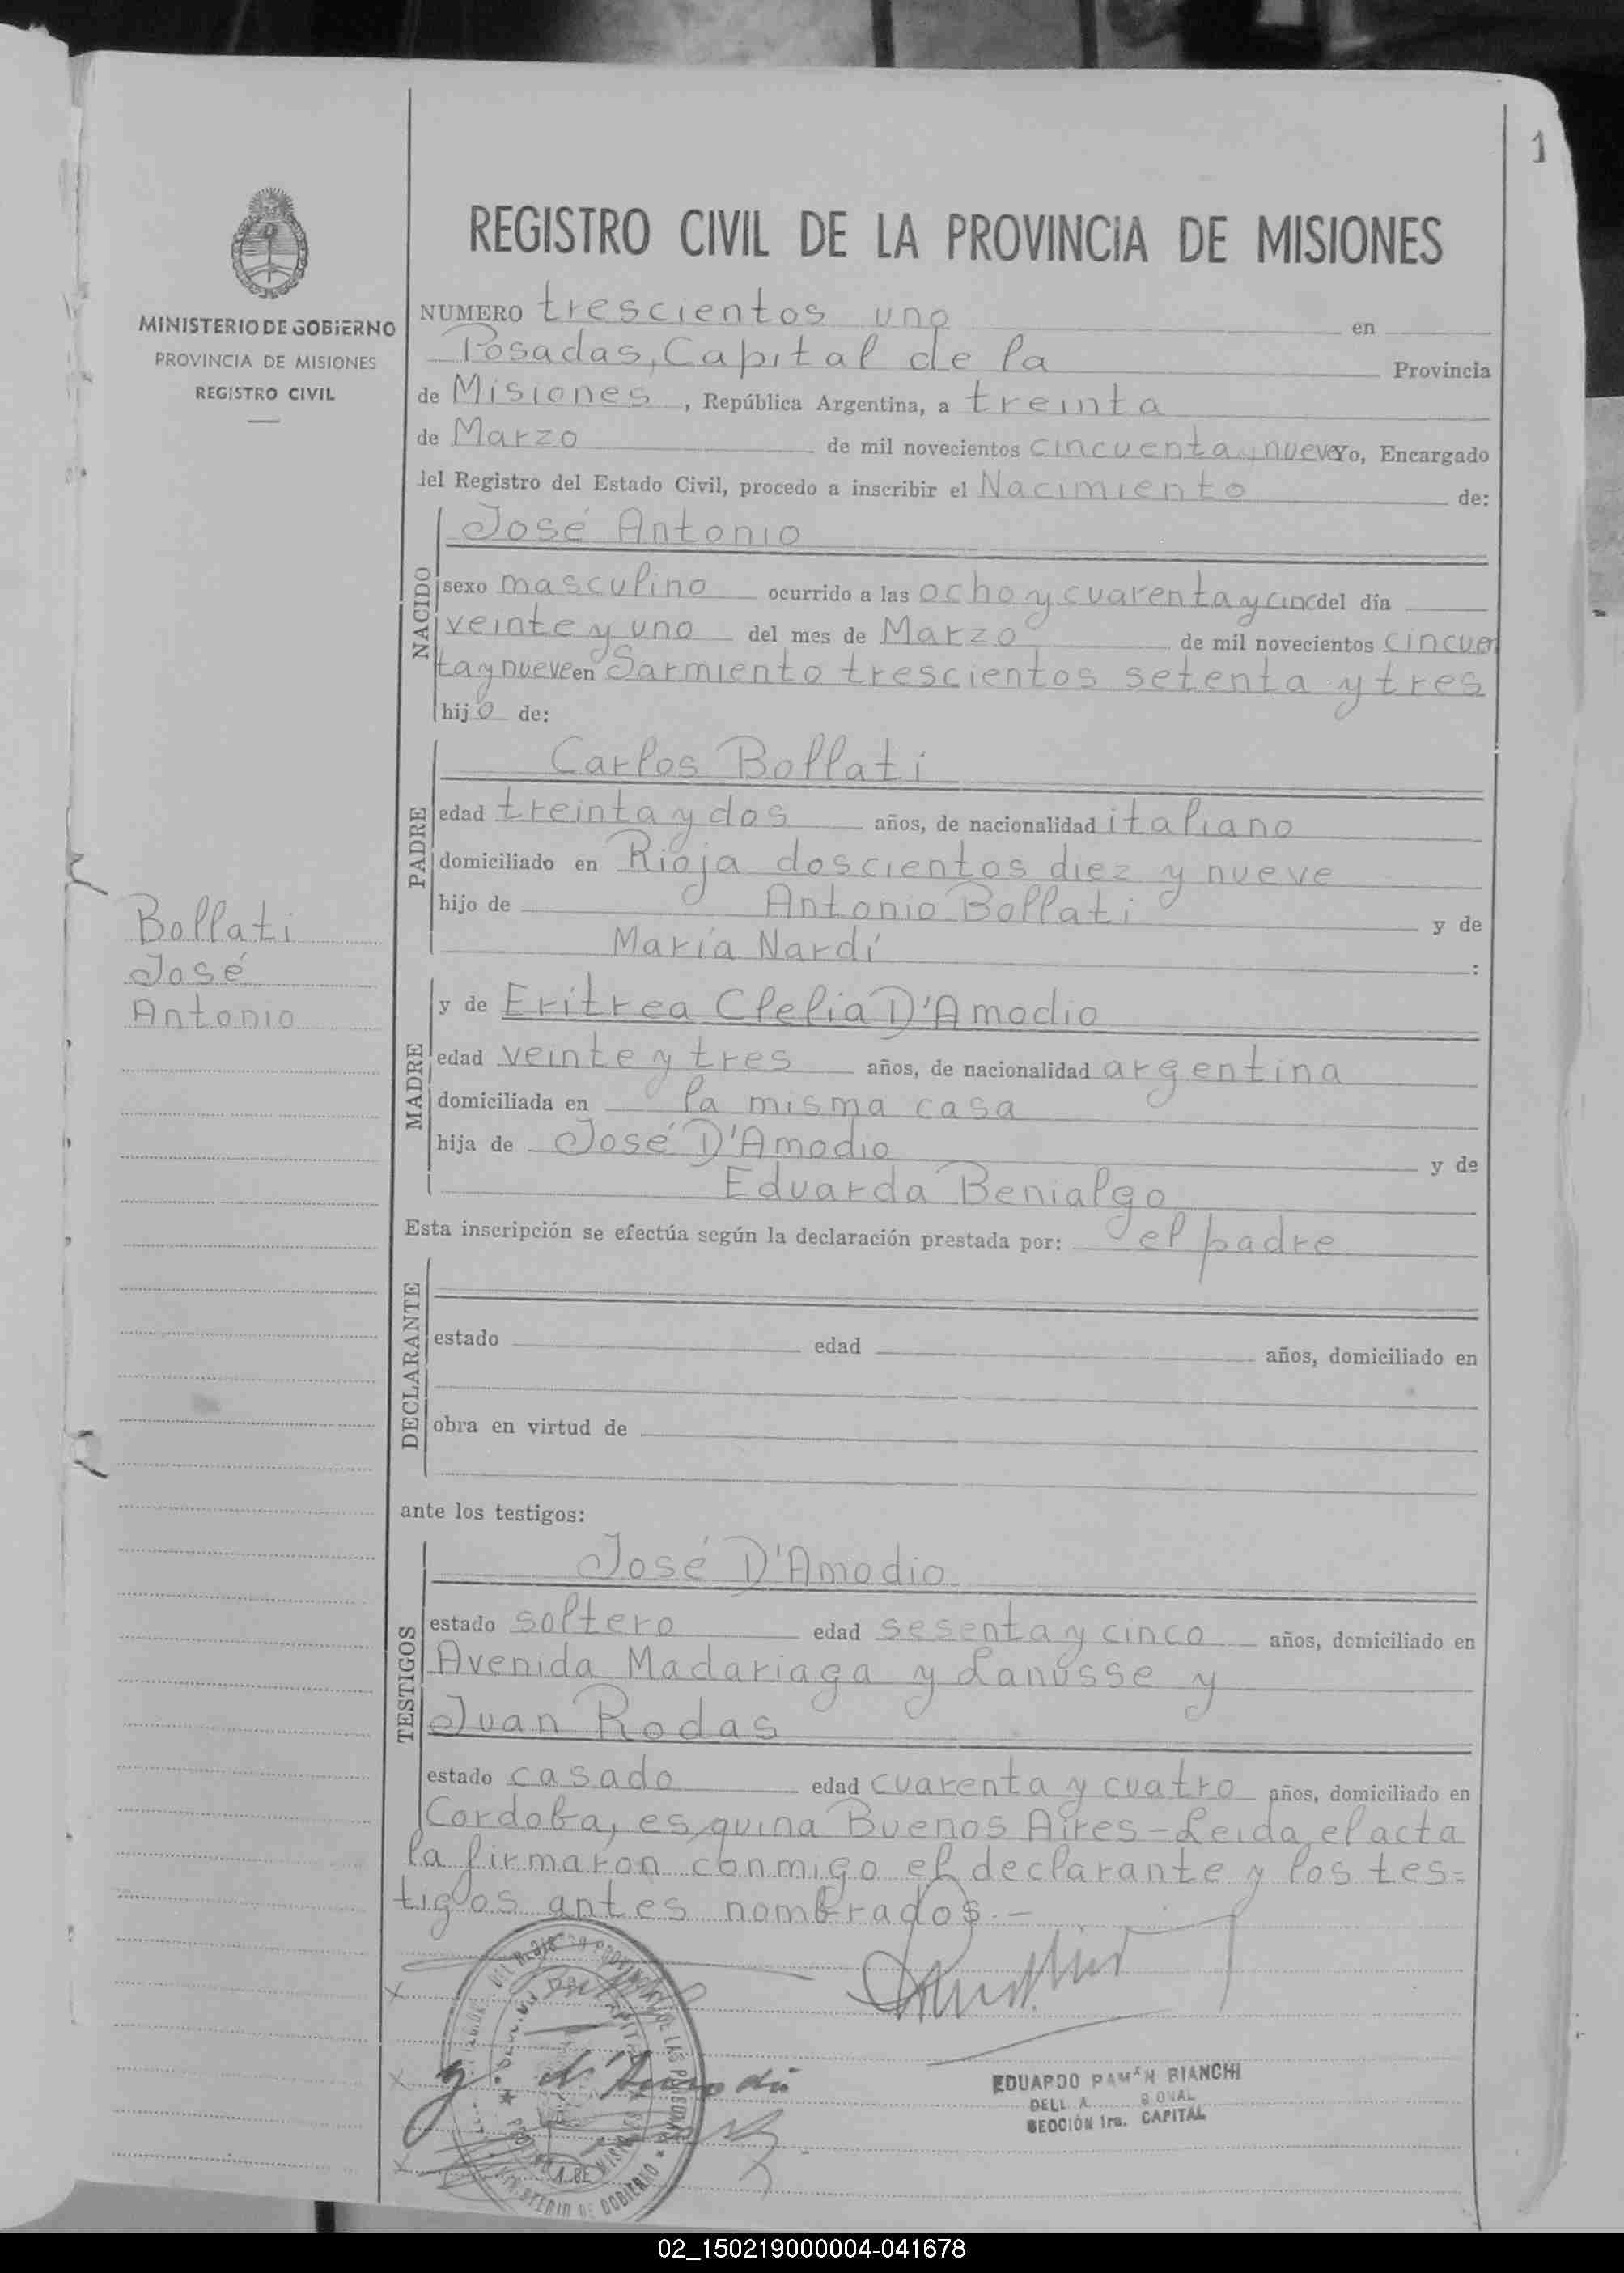 1
REGISTRO CIVIL DE LA PROVINCIA DE MISIONES
MINISTERIO DE GOBIERNO
PROVINCIA DE MISIONES
REGISTRO CIVIL
NUMERO trescientos uno en
Posadas, Capital de la Provincia
de Misiones, República Argentina, a treinta
de Marzo de mil novecientos cincuenta y nueve Yo, Encargado
del Registro del Estado Civil, procedo a inscribir el Nacimiento de:
NACIDO
José Antonio
sexo masculino ocurrido a las ocho y cuarenta y cinc del día
veinte y uno del mes de Marzo de mil novecientos cincuen
ta y nueve en Sarmiento trescientos setenta y tres
hijo de:
PADRE
Carlos Bollati
edad treinta y dos años, de nacionalidad italiano
domiciliado en Rioja doscientos diez y nueve
hijo de Antonio Bollati y de
María Nardí :
Bollati
José
Antonio
MADRE
y de Eritrea Clelia D'Amodio
edad veinte y tres años, de nacionalidad argentina
domiciliada en la misma casa
hija de José D'Amodio y de
Eduarda Benialgo
Esta inscripción se efectúa según la declaración prestada por: el padre
DECLARANTE
estado edad años, domiciliado en
obra en virtud de
ante los testigos:
TESTIGOS
José D'Amodio
estado soltero edad sesenta y cinco años, domiciliado en
Avenida Madariaga y Lanusse y
Juan Rodas
estado casado edad cuarenta y cuatro años, domiciliado en
Cordoba, esquina Buenos Aires - Leida, el acta
la firmaron conmigo el declarante y los tes=
tigos antes nombrados.-
g. D'Amodio
EDUARDO RAMÓN BIANCHI
SECCIÓN 1ra. CAPITAL
MINISTERIO DE GOBIERNO
02_150219000004-041678